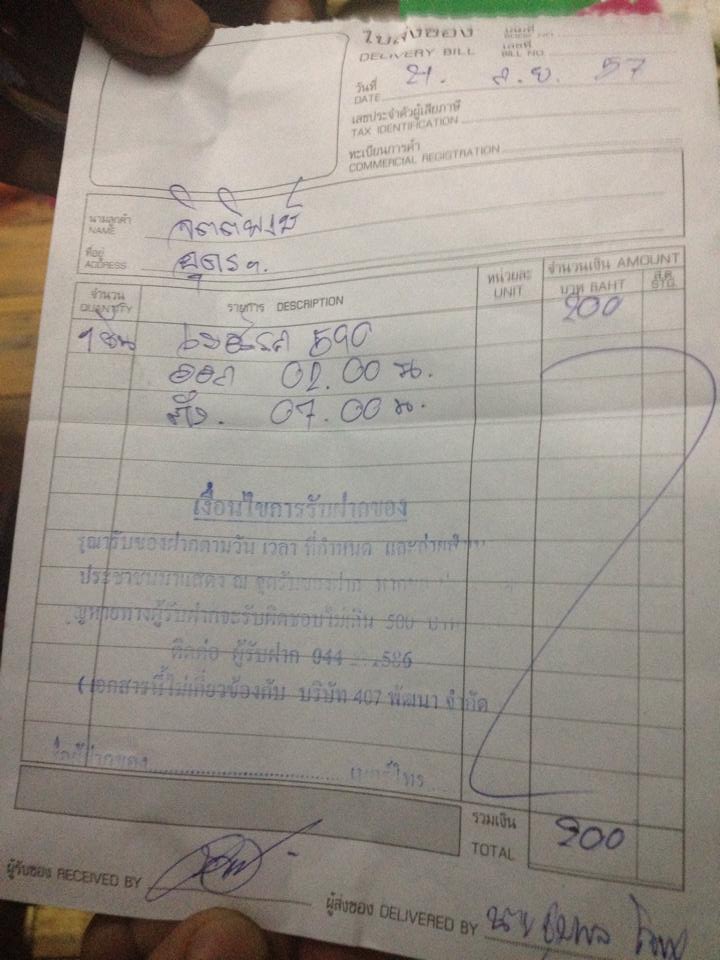 ใบส่งของ
DELIVERY BILL
เล่มที่
BOOK NO.
เลขที่
BILL NO.
วันที่ 21. ส.ย. 57
DATE
เลขประจำตัวผู้เสียภาษี
TAX IDENTIFICATION
ทะเบียนการค้า
COMMERCIAL REGISTRATION
นามลูกค้า
NAME
ที่อยู่ อุดรฯ
ADDRESS
จำนวน รายการ DESCRIPTION หน่วยละ จำนวนเงิน AMOUNT
QUANTITY UNIT บาท BAHT ส.ต. STG.
200
1 ชิ้น 590
ออก 02.00 น.
ถึง. 07.00 น.
เงื่อนไขการรับฝากของ
รุณารับของฝากตามวัน เวลา ที่กำหนด และถ่ายสำเนา
ประชาชนมาแสดง ณ จุดรับของฝาก
ญหายทางผู้รับฝากจะรับผิดชอบไม่เกิน 500 บาท
ติดต่อ ผู้รับฝาก 044 586
(เอกสารนี้ไม่เกี่ยวข้องกับ บริษัท 407 พัฒนา จำกัด
ชื่อผู้ฝากของ เบอร์โทร
รวมเงิน 200
TOTAL
ผู้รับของ RECEIVED BY
ผู้ส่งของ DELIVERED BY นาย